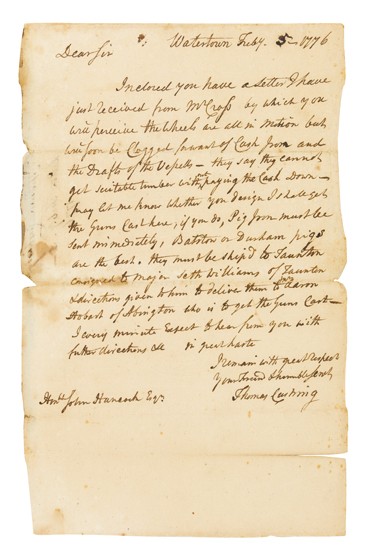 Watertown Feby. 5 1776
Dear Sir
Inclosed you have a Letter I have
just received from Mr Cross by which you
will perceive the Wheels are all in Motion but
will soon be Clogged for want of Cash Iron and
the Drafts of the Vessells — they say they cannot
get suitable timber without paying the Cash Down —
pray let me know whether you design I shall get
the Guns Cast here, if you do, Pig Iron must be
sent immediately, Batston or Durham pigs
are the best, they must be ship'd to Taunton
consigned to Major Seth Williams of Taunton
& directions given to him to deliver them to Aaron
Hobart of Abington who is to get the Guns Cast —
I every minute expect to hear from you with
further directions &c in great haste
I remain with great respect
Your Friend & humble Servt
Thomas Cushing
Honl John Hancock Esqr